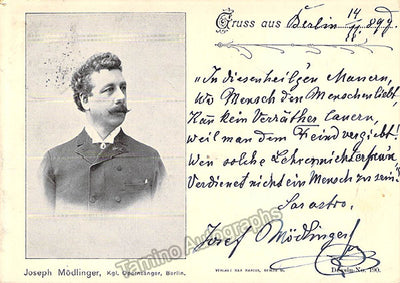 Gruss aus Berlin 14/11. 899.
"In diesen heil'gen Mauern,
Wo Mensch den Menschen liebt,
Kann kein Verräther lauern,
weil man dem Feind vergiebt!
Wen solche Lehren nicht erfreu'n
Verdienet nicht ein Mensch zu sein!"
Sarastro.
Josef Mödlinger
Joseph Mödlinger, Kgl. Opernsänger, Berlin.
VERLAG MAX MARCUS, BERLIN
Dessin-No. 190.
Tamino Autographs